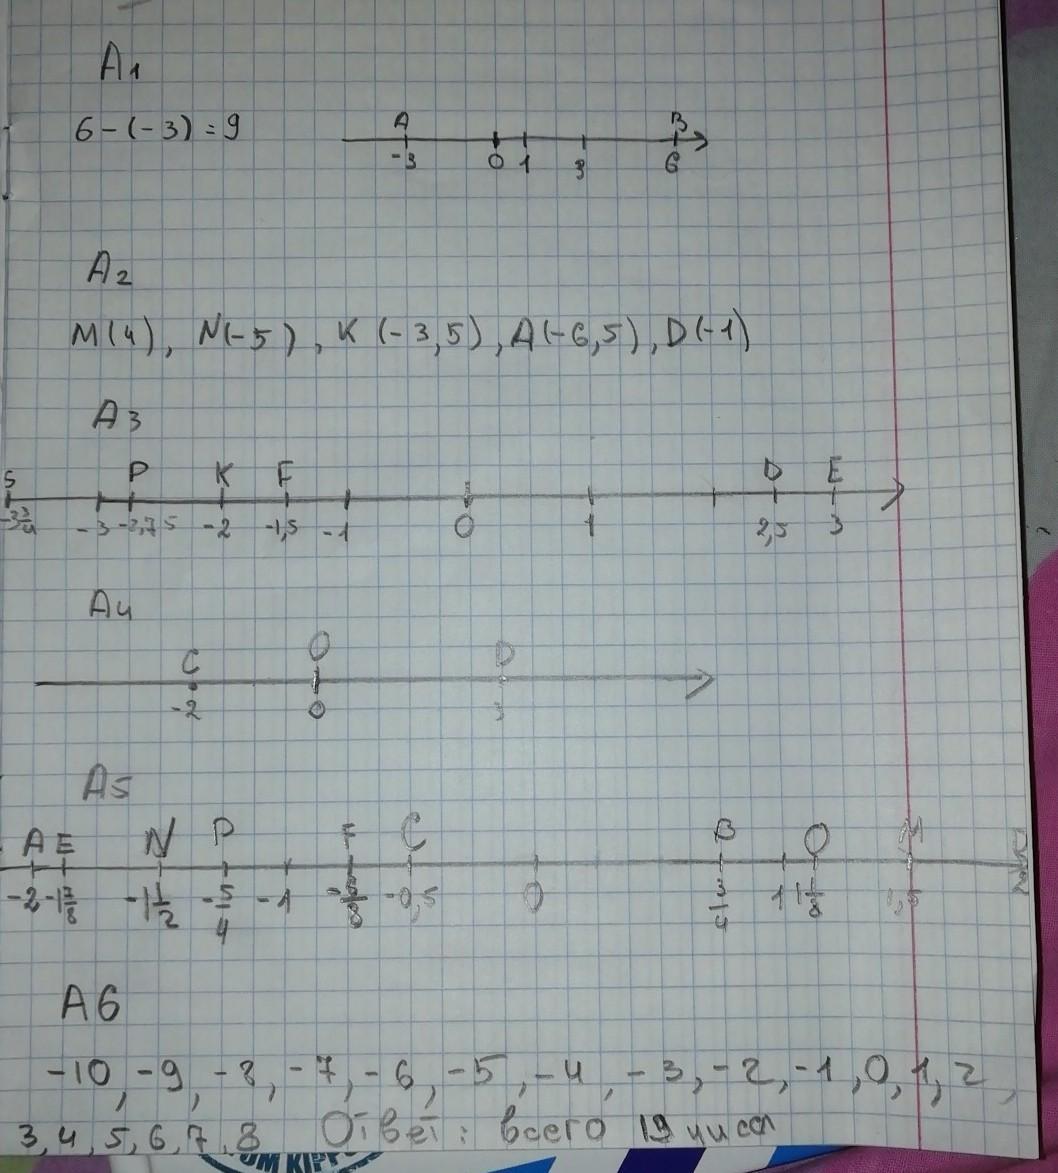 A1
6-(-3)=9
A B
-3 0 1 3 6
A2
M(4), N(-5), K(-3,5), A(-6,5), D(-1)
A3
S P K F D E
-3 3/4 -3 -2,75 -2 -1,5 -1 0 1 2,5 3
A4
C O D
-2 0 3
A5
A E N P F C B O M
-2 -1 7/8 -1 1/2 -5/4 -1 -0,5 0 3/4 1 1 1/8
A6
-10, -9, -8, -7, -6, -5, -4, -3, -2, -1, 0, 1, 2,
3, 4, 5, 6, 7, 8 Ответ: всего 19 чисел
OM KIPP